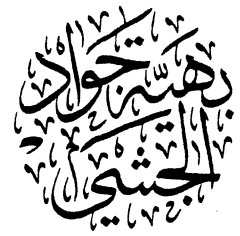 بهيّة جواد
الجشيّ